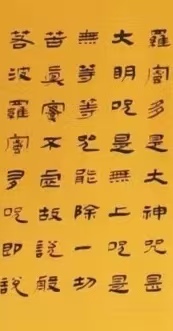 羅蜜多是大神咒是
大明呪是無上呪是
無等等咒能除一切
苦真實不虛故說般
若波羅蜜多呪即說